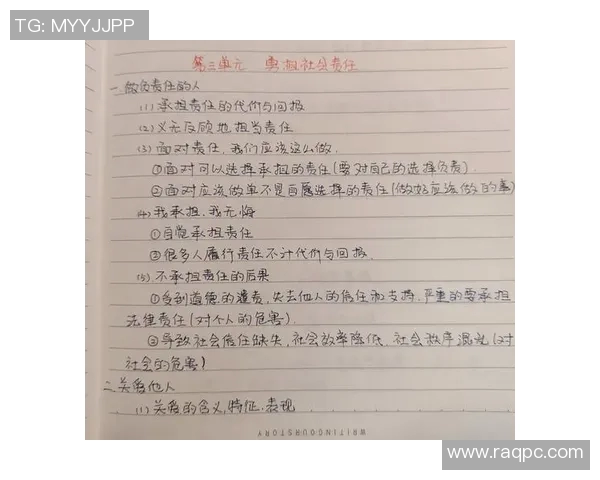 TG: MYYJJPP
第三单元 勇担社会责任
一.做负责任的人
(1)承担责任的代价与回报
(2)义无反顾地担当责任
(3)面对责任,我们应该这么做.
①面对可以选择承担的责任(要对自己的选择负责).
②面对应该做单不是自愿选择的责任(做好应该做的事)
(4)我承担,我无悔
①自觉承担责任
②很多人履行责任不计代价与回报.
(5).不承担责任的后果
①受到道德的谴责,失去他人的信任和支持,严重的要承担
法律责任(对个人的危害).
②导致社会信任缺失,社会效率降低,社会秩序混乱(对
社会的危害)
二.关爱他人
(1)关爱的含义,特征.表现
WRITINGOURSTORY
www.raqpc.com